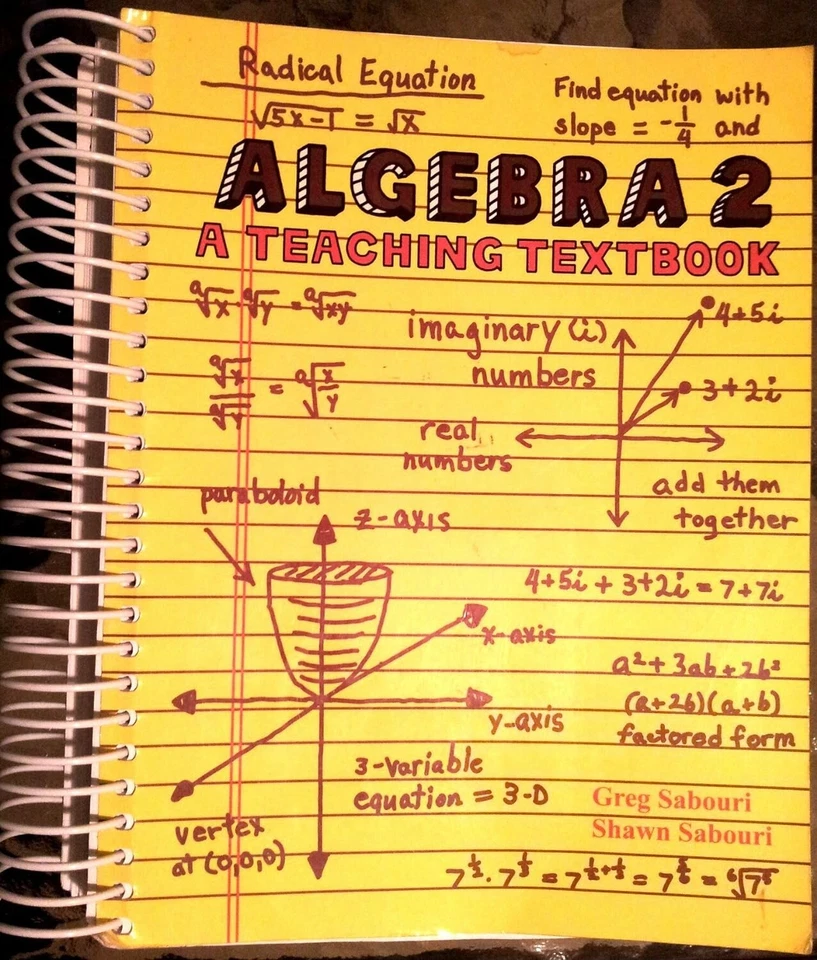 Radical Equation
√5x-1 = √x
Find equation with
slope = -1/4 and
ALGEBRA 2
A TEACHING TEXTBOOK
ᵃ√x · ᵃ√y = ᵃ√xy
ᵃ√x / ᵃ√y = ᵃ√x/y
imaginary (i)
numbers
4+5i
3+2i
real
numbers
add them
together
paraboloid
z-axis
x-axis
y-axis
4+5i + 3+2i = 7+7i
a²+3ab+2b²
(a+2b)(a+b)
factored form
3-variable
equation = 3-D
vertex
at (0,0,0)
Greg Sabouri
Shawn Sabouri
7^½ · 7^⅓ = 7^½+⅓ = 7^⅚ = ⁶√7⁵